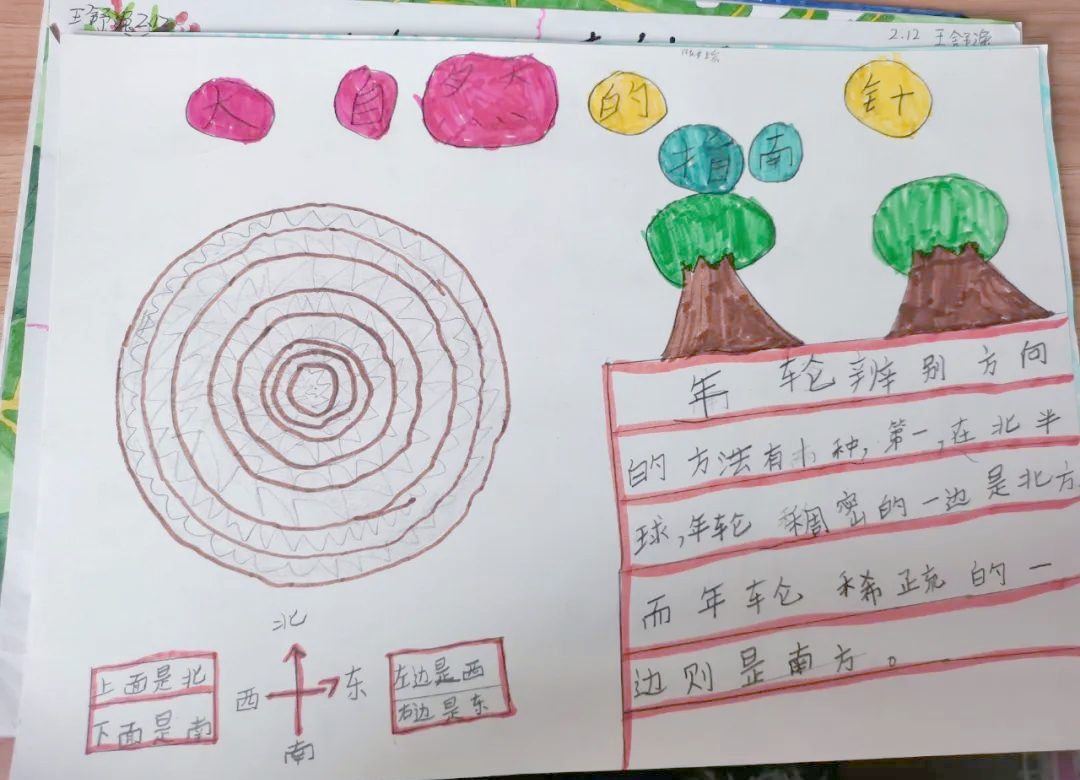 2.12
大自然的指南针
年轮辨别方向
的方法有 种,第一,在北半
球,年轮稠密的一边是北方
而年轮稀疏的一
边则是南方。
北
西 东
南
上面是北
下面是南
左边是西
右边是东